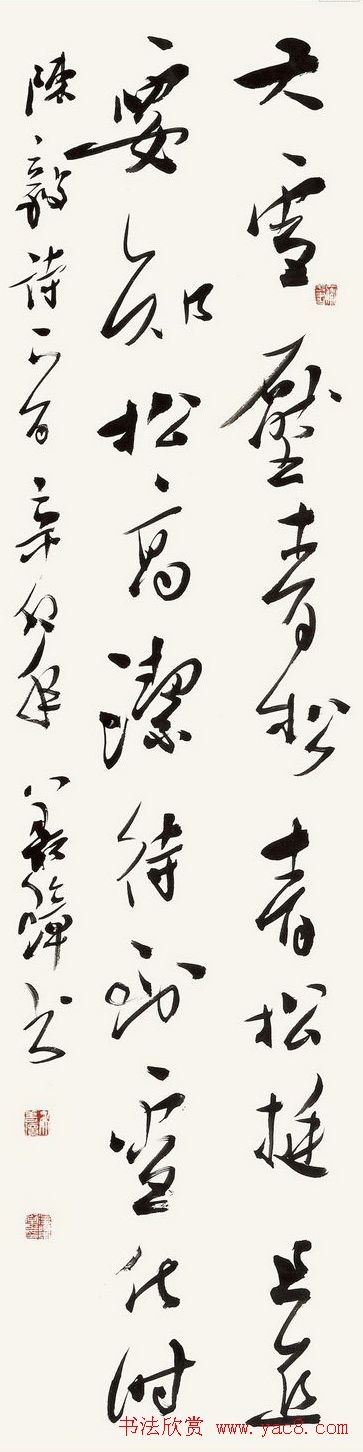 大雪壓青松青松挺且直
要知松高潔待到雪化時
陳毅詩一首辛卯年書
书法欣赏 www.yac8.com